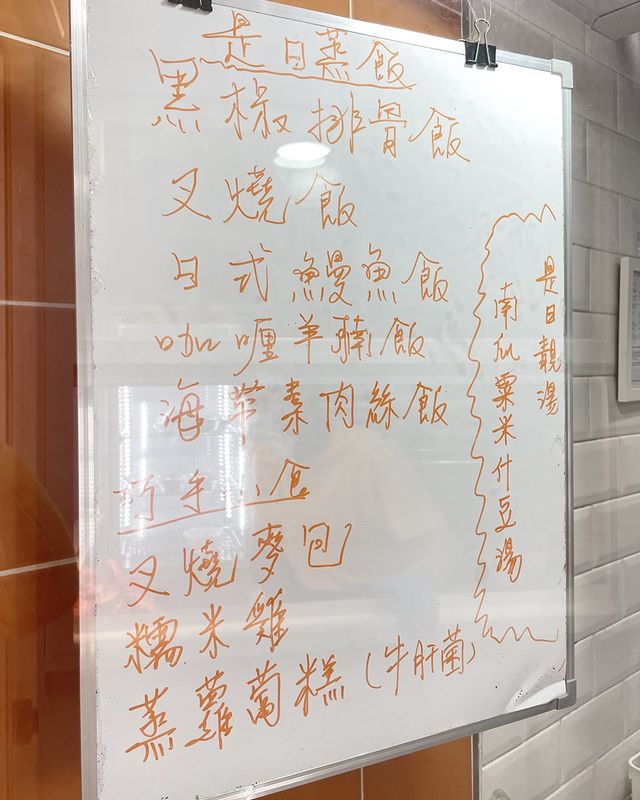 是日蒸飯
黑椒排骨飯
叉燒飯
日式鰻魚飯
咖喱羊腩飯
海帶素肉絲飯
巧手小食
叉燒麥包
糯米雞
蒸蘿蔔糕(牛肝菌)
是日靚湯
南瓜粟米什豆湯